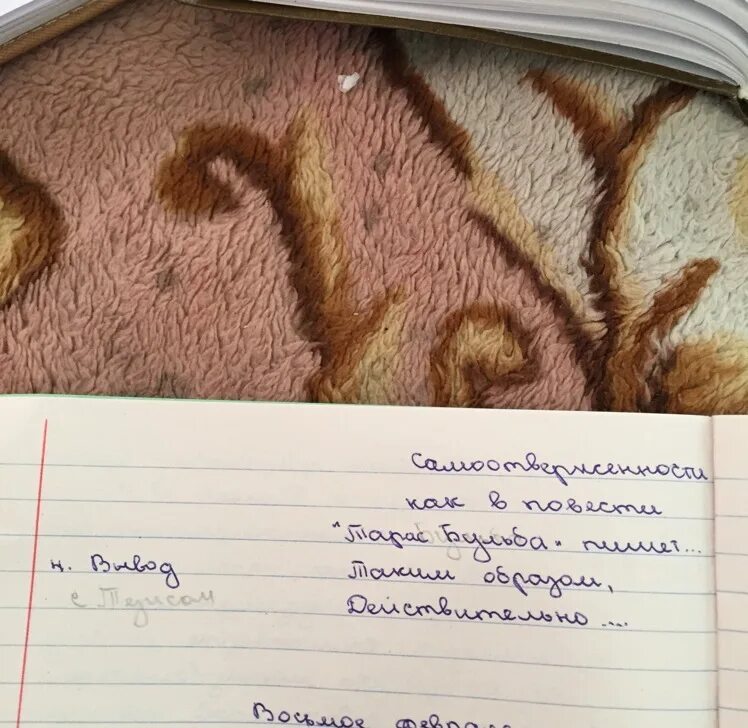 самоотверженности
как в повести
"Тарас Бульба" пишет...
ч. Вывод Таким образом,
с Тезисом Действительно ....
Восьмое февраля